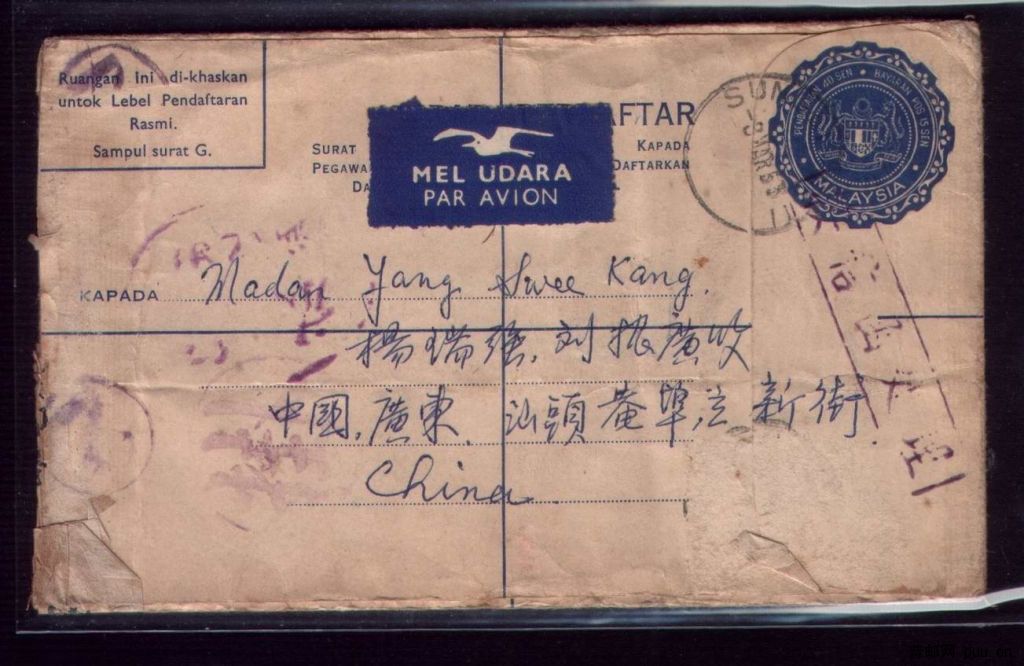 Ruangan Ini di-khaskan
untok Lebel Pendaftaran
Rasmi.
Sampul surat G.
AFTAR
SURAT
KAPADA
PEGAWA
DAFTARKAN
DA
MEL UDARA
PAR AVION
PENDAFTARAN 40 SEN • BAYARAN POS 15 SEN
MALAYSIA
SUN
KAPADA Madam Yang Swee Kang.
楊瑞強,刘振廣收
中國,廣東,汕頭菴埠,立新街
China